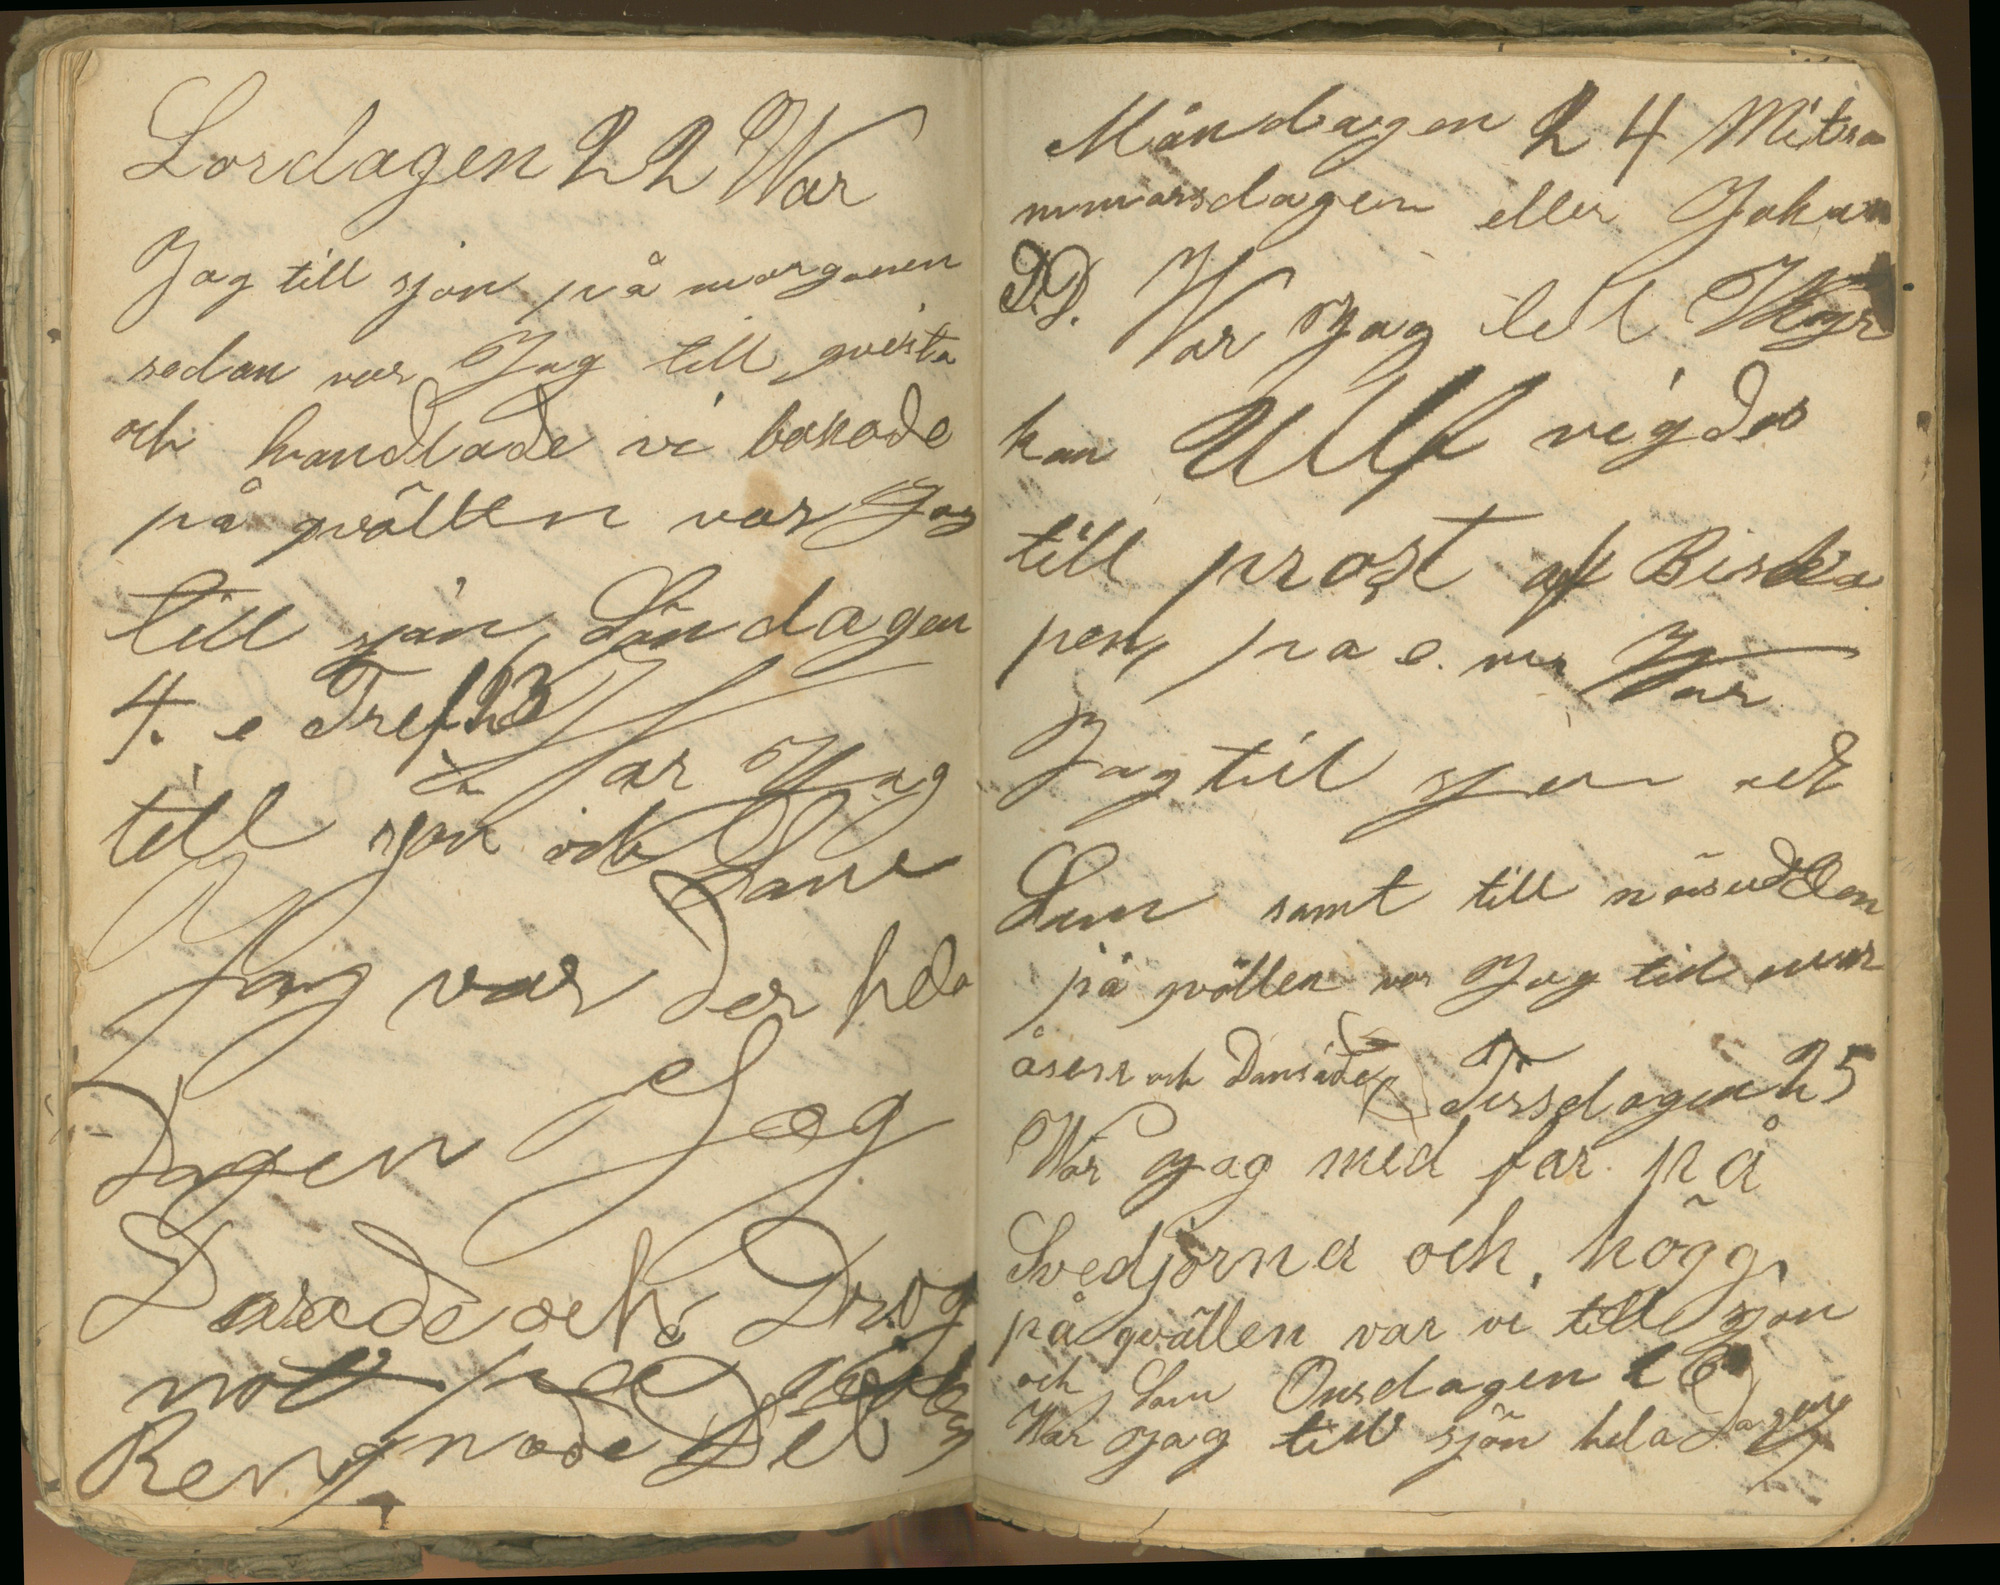 Lordagen 22 War
Jag till sjon på morgonen
sedan var Jag till gvista
och handlade vi bakade
på qvällen var Jag
till sjön, Söndagen
4. e Tref 23
War Jag
till sjon och
Jag var der hela
Dagen Jag
och Drog
not på
Rengnade Det
Måndagen 24 Mitso
mmarsdagen eller Johan
D.D. War Jag till Kyr
kan Ulf vigdes
till prost af Bisko
pen, på e. m War
Jag till sjon och
Sam samt till näsudden
på qvällen var Jag till mar
åsen och Dansade Tissdagen 25
War Jag med far på
Svedjorna och högg,
på qvällen var vi till sjon
och Sam Onsdagen 26
War Jag till sjön hela Dagen